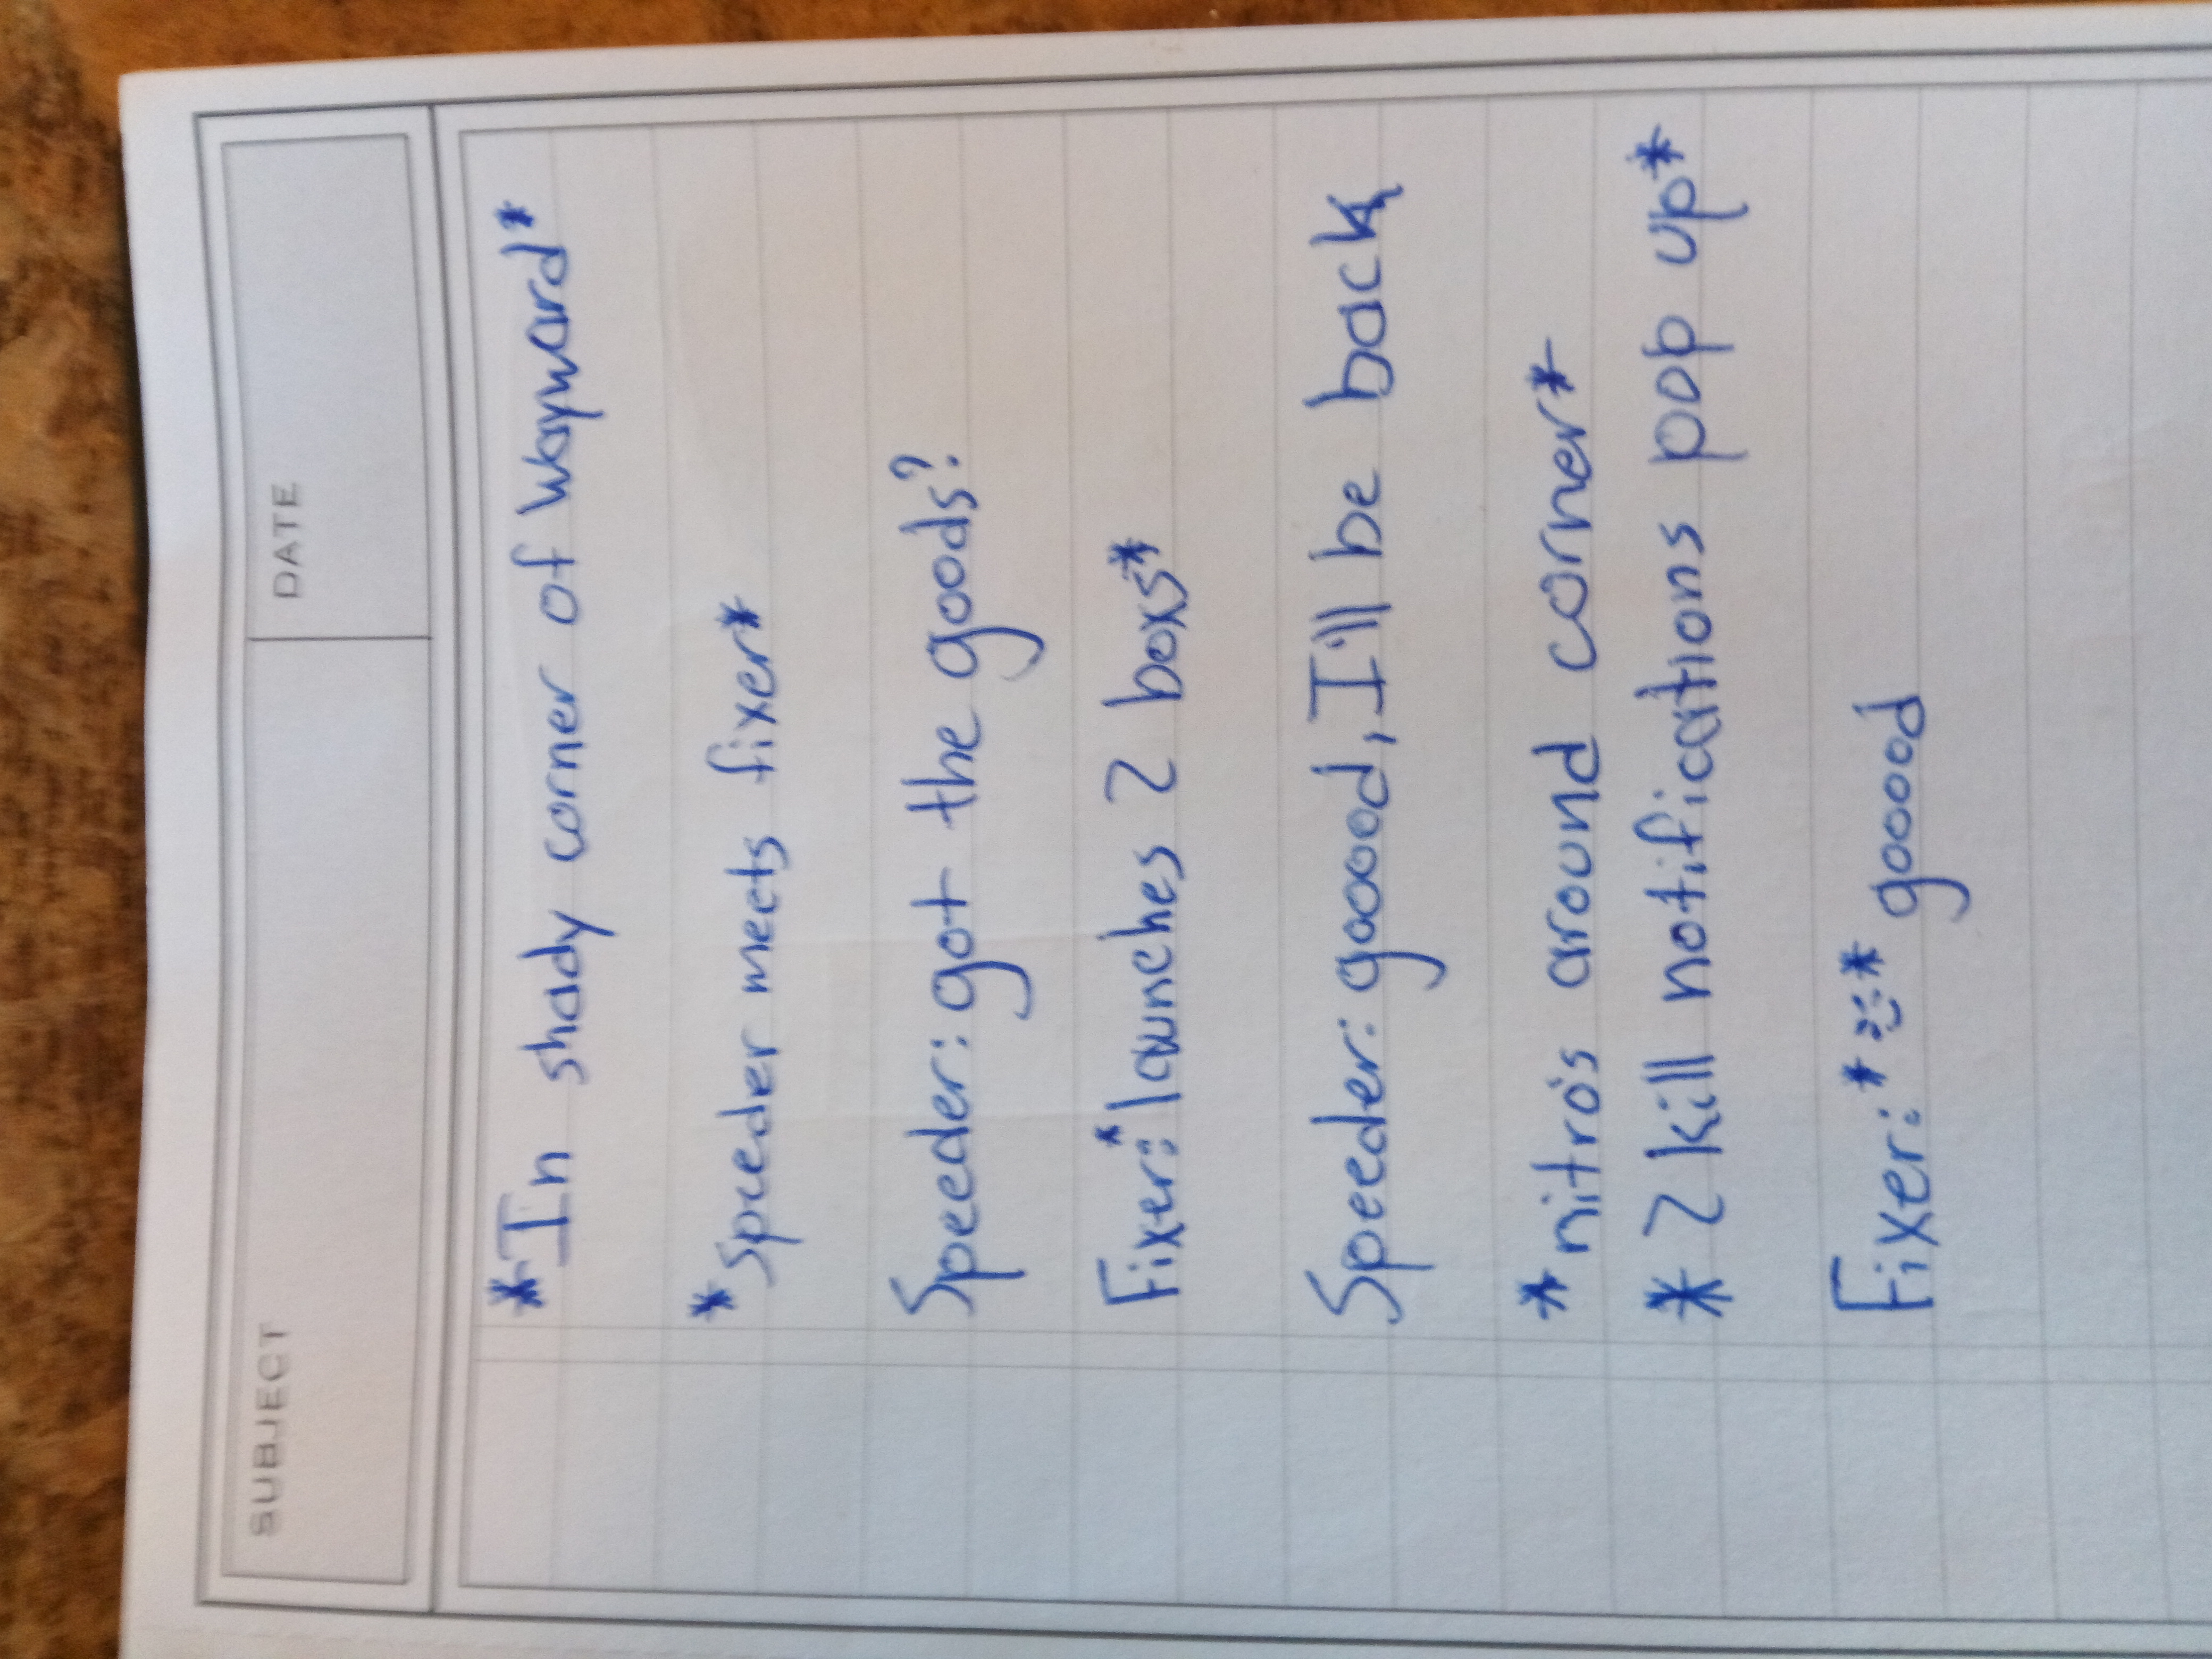 SUBJECT DATE
*In shady corner of Wayward*
*Speeder meets fixer*
Speeder: got the goods?
Fixer: *launches 2 boxs*
Speeder: gooood, I'll be back
*nitro's around corner*
* 2 kill notifications pop up*
Fixer: * * gooood